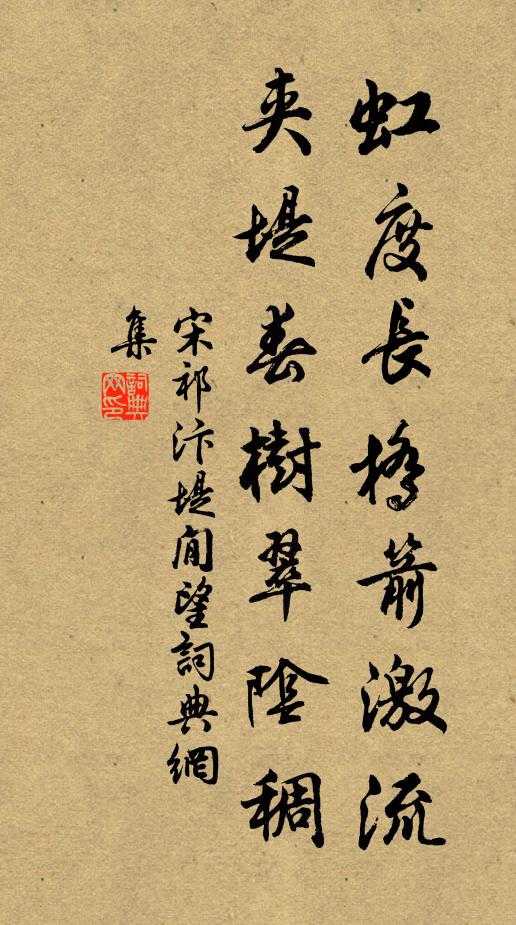 虹度長橋箭激流
夾堤春樹翠陰稠
宋祁汴堤閒望詞典網
集
詞典
網印